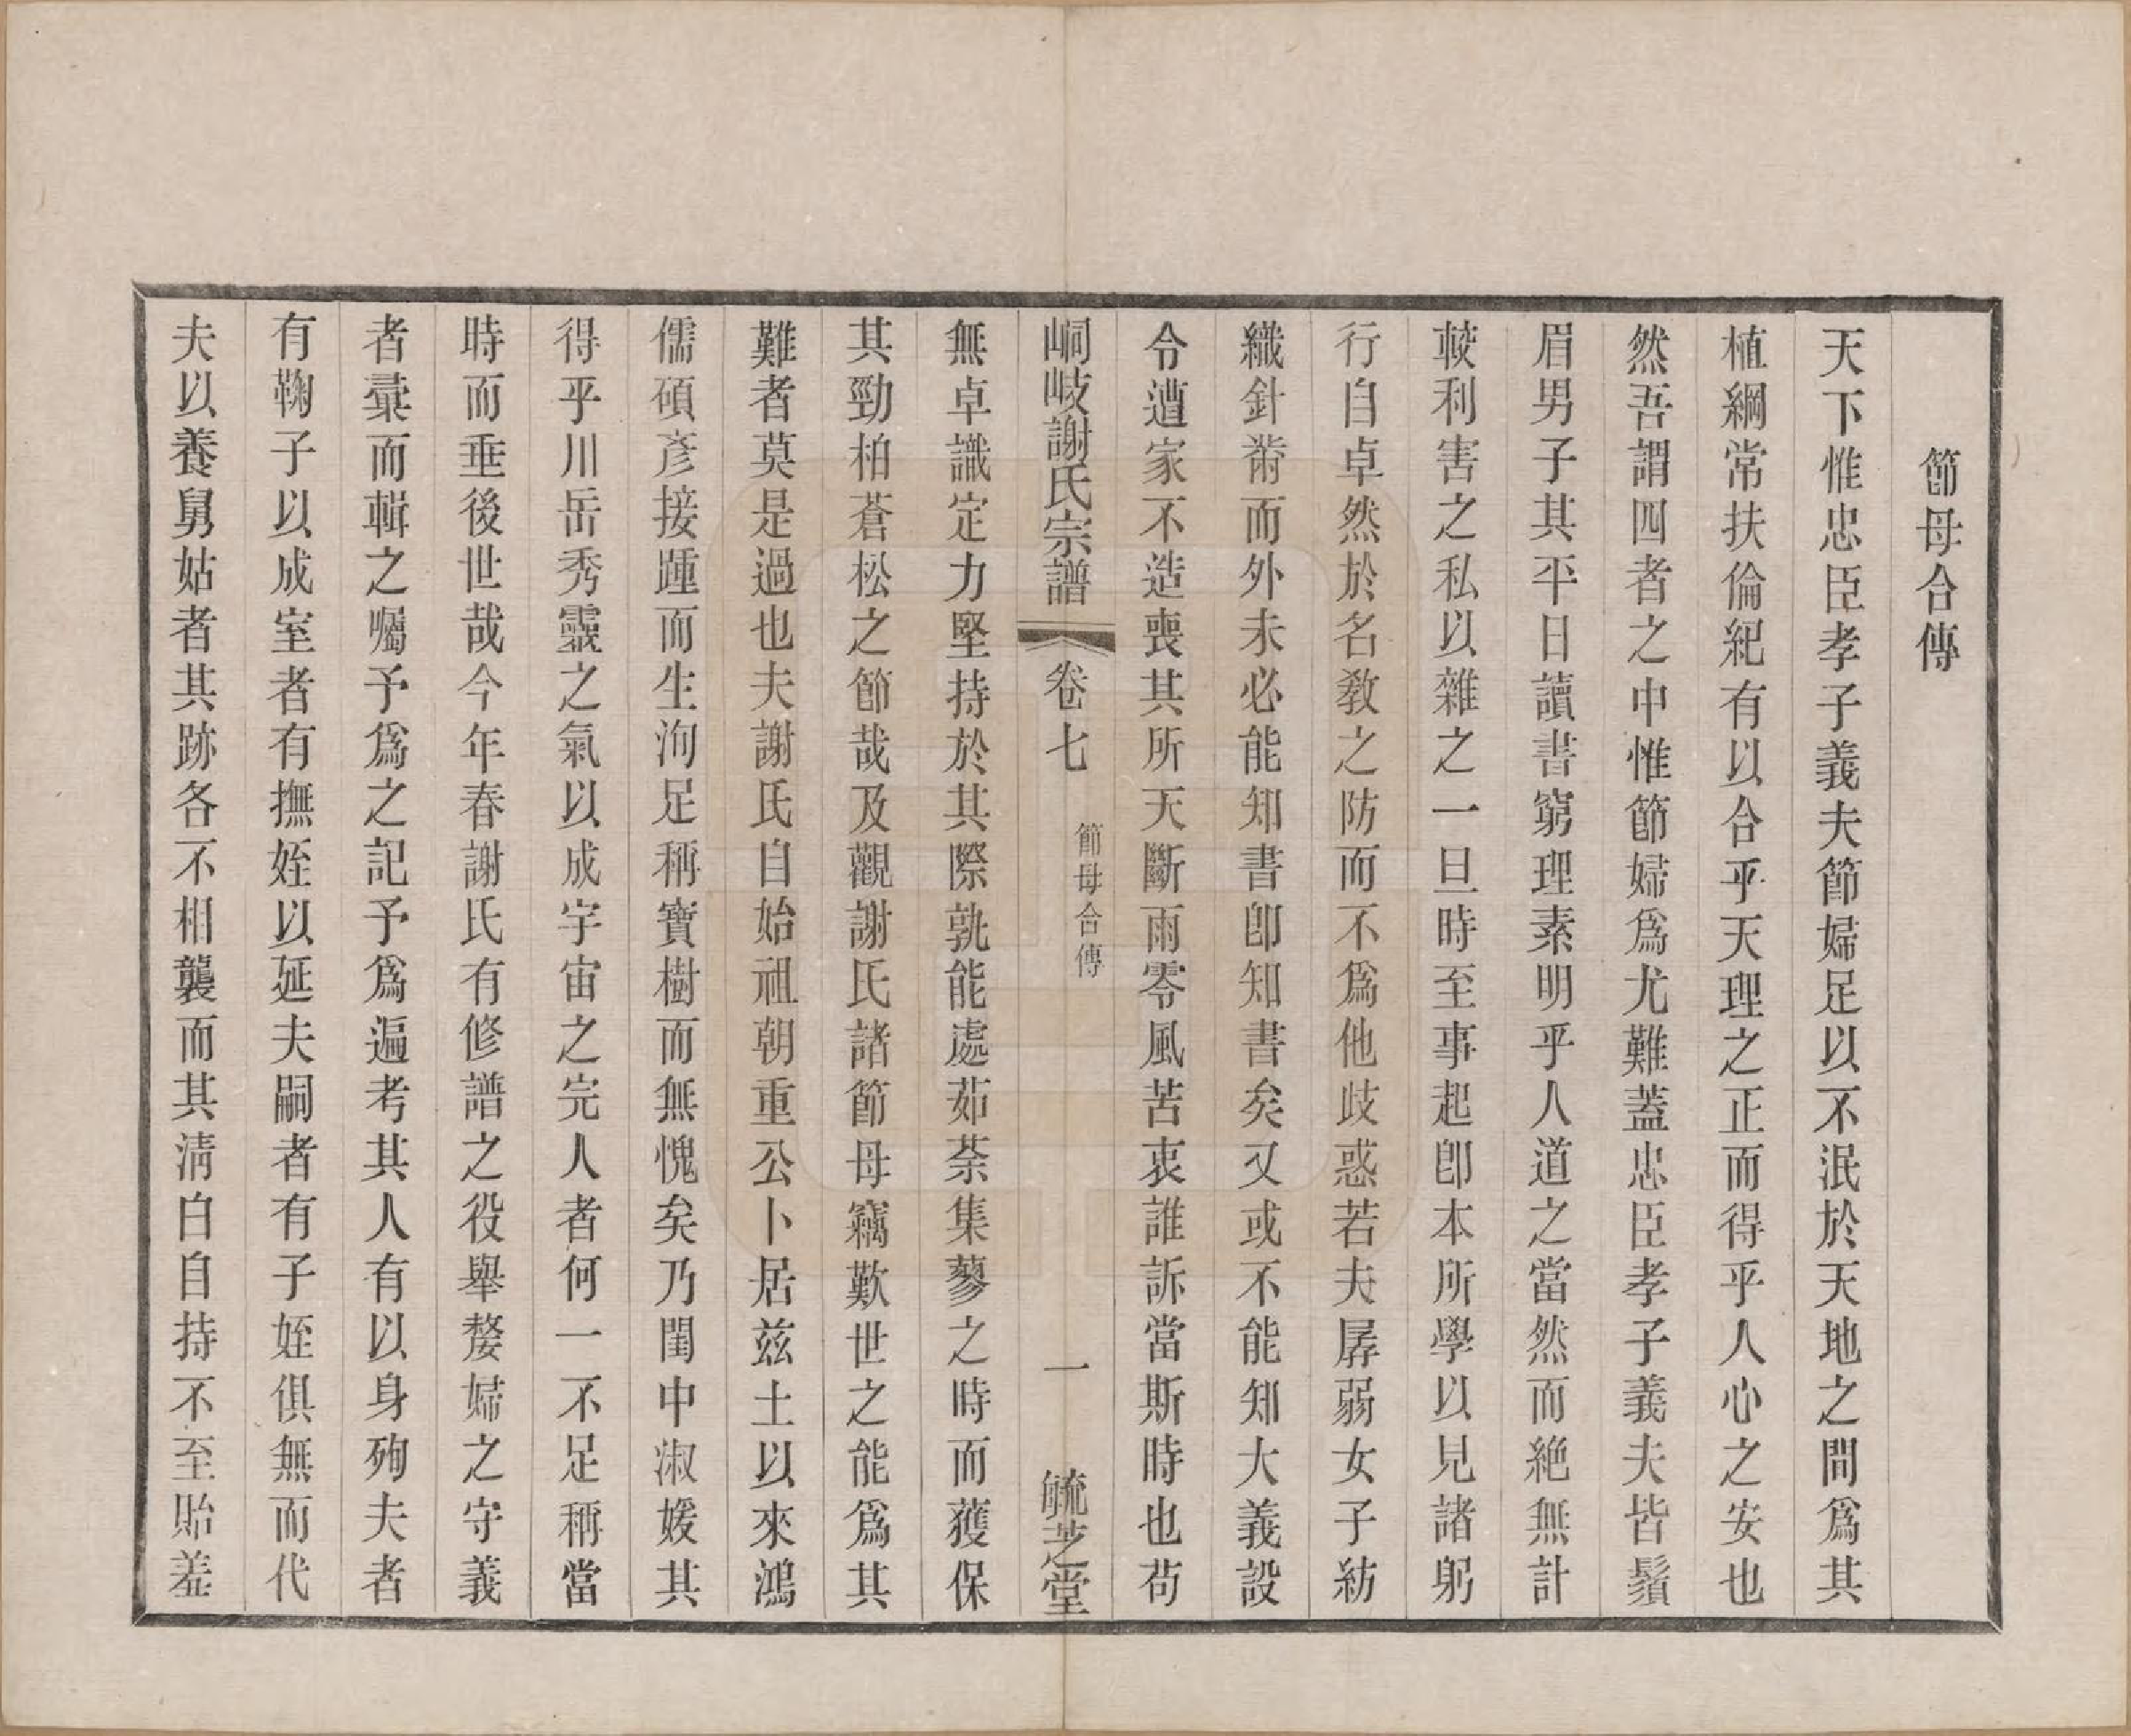 節母合傳
天下惟忠臣孝子義夫節婦足以不泯於天地之間爲其
植綱常扶倫紀有以合乎天理之正而得乎人心之安也
然吾謂四者之中惟節婦爲尤難蓋忠臣孝子義夫皆鬚
眉男子其平日讀書窮理素明乎人道之當然而絕無計
較利害之私以雜之一旦時至事起卽本所學以見諸躬
行自卓然於名敎之防而不爲他歧惑若夫孱弱女子紡
織針黹而外未必能知書卽知書矣又或不能知大義設
令遭家不造喪其所天斷雨零風苦衷誰訴當斯時也苟
峒岐謝氏宗譜
卷七
節母合傳
一
毓芝堂
無卓識定力堅持於其際孰能處茹荼集蓼之時而獲保
其勁柏蒼松之節哉及觀謝氏諸節母竊歎世之能爲其
難者莫是過也夫謝氏自始祖朝重公卜居兹土以來鴻
儒碩彥接踵而生洵足稱寶樹而無愧矣乃閨中淑媛其
得乎川岳秀靈之氣以成宇宙之完人者何一不足稱當
時而垂後世哉今年春謝氏有修譜之役舉嫠婦之守義
者彙而輯之囑予爲之記予爲遍考其人有以身殉夫者
有鞠子以成室者有撫姪以延夫嗣者有子姪俱無而代
夫以養舅姑者其跡各不相襲而其淸白自持不至貽羞